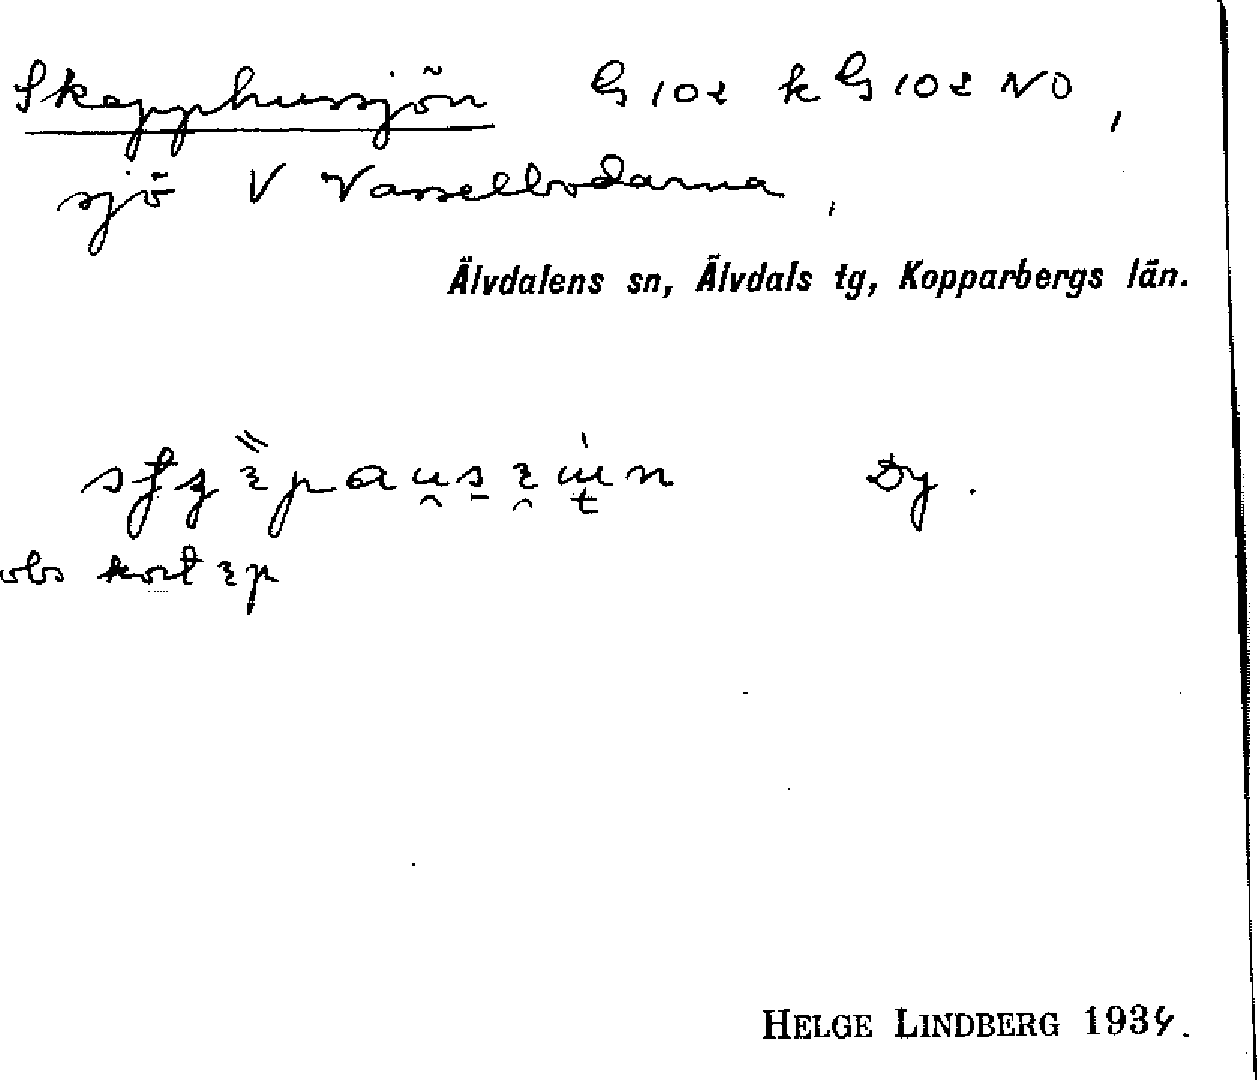 Skepphussjön G 102 k G 102 NO,
sjö V Vasselbodarna,
Älvdalens sn, Älvdals tg, Kopparbergs län.
Dy.
obs kort
HELGE LINDBERG 1934.